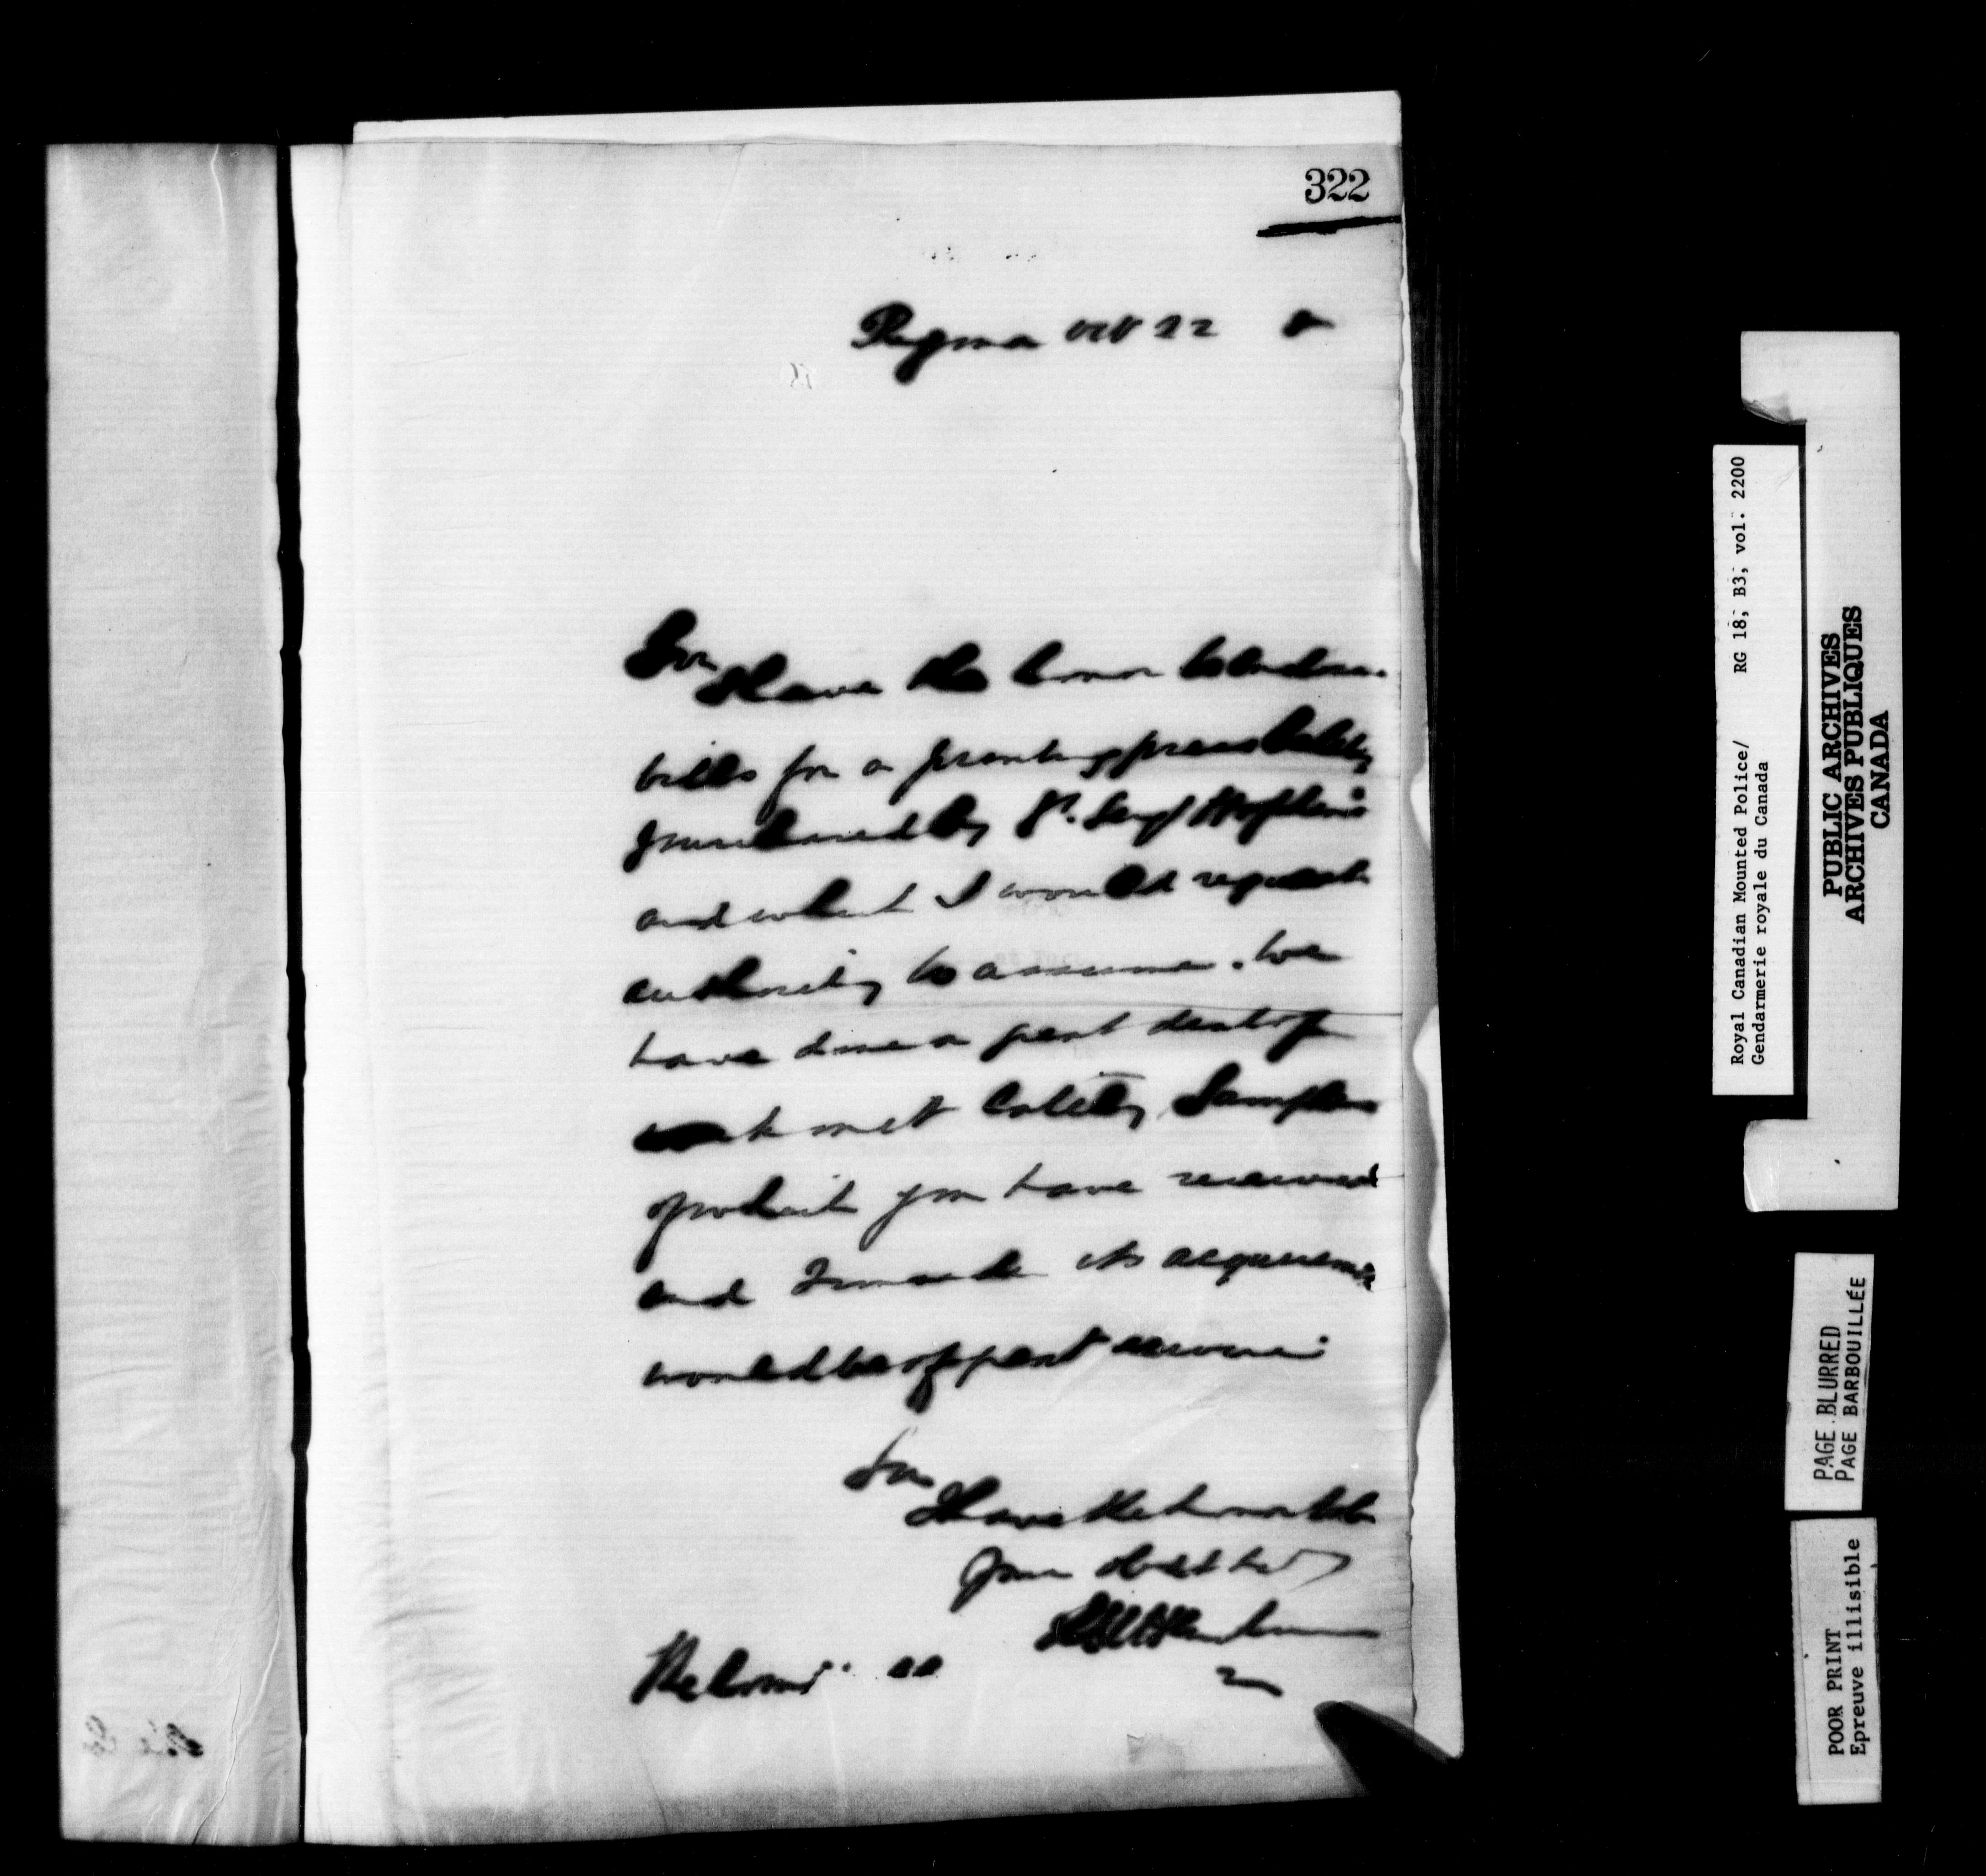 322
Regina Oct 22 8
Sir
I have the honor to enclose
bills for a printing press lately
purchased by St. Sergt
and which I would request
authority to assume. We
have done a great deal of
work with lately Samples
of which you have received
and I its
would be of great service
Sir
I have the honor to be
Your obedt
The Comr
Royal Canadian Mounted Police/ RG 18, B3, vol. 2200
Gendarmerie royale du Canada
PUBLIC ARCHIVES
ARCHIVES PUBLIQUES
CANADA
PAGE BLURRED
PAGE BARBOUILLÉE
POOR PRINT
Epreuve illisible